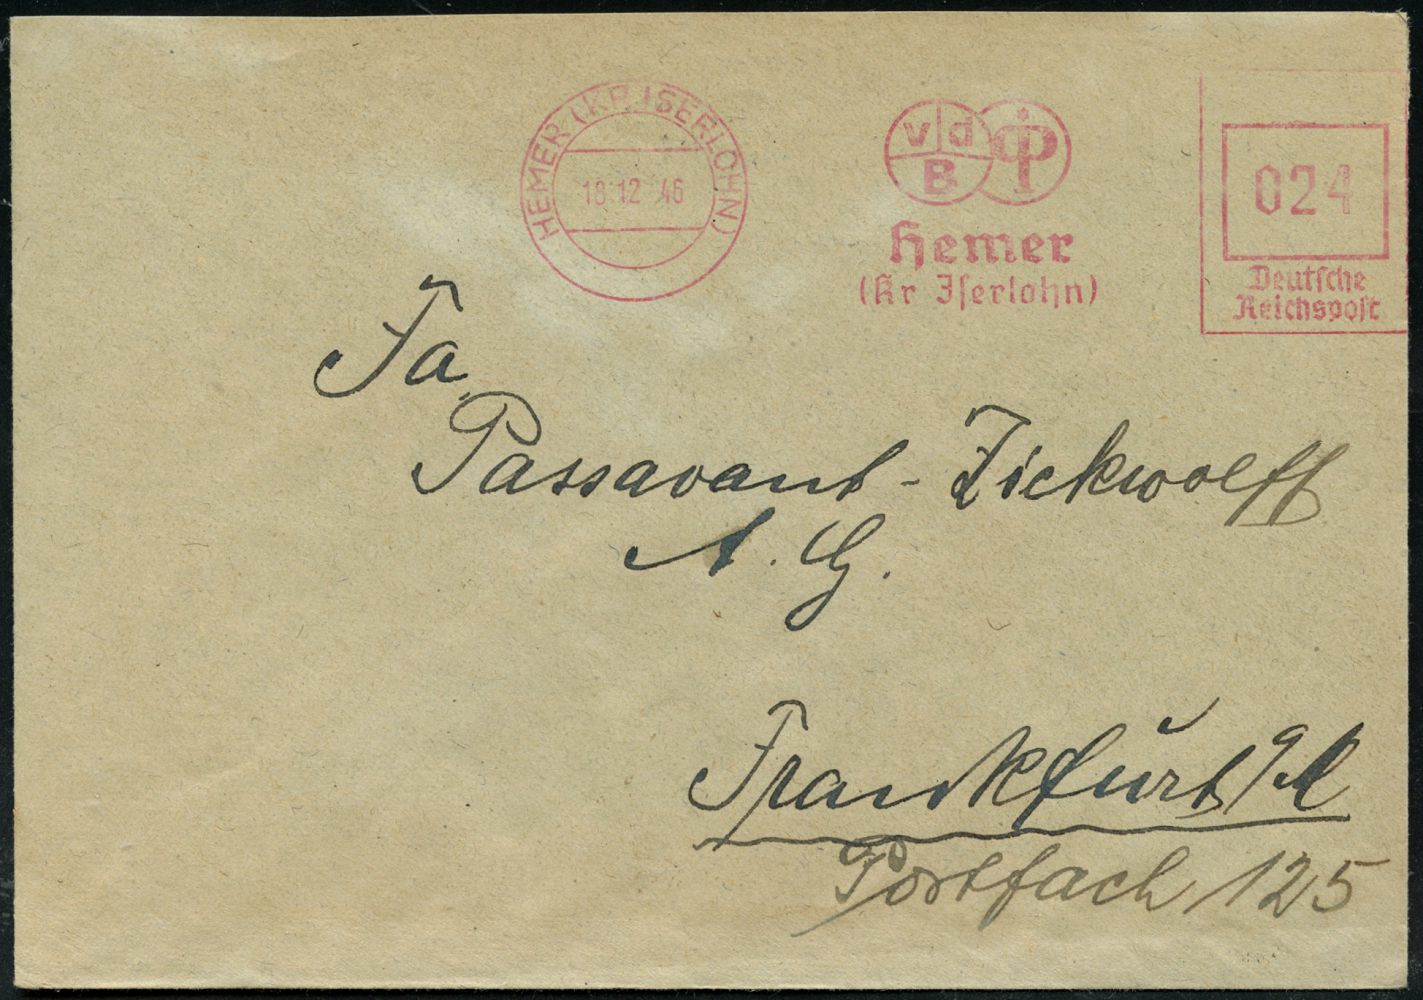 HEMER (KR. ISERLOHN)
18.12.46
vdB
Hemer
(Kr Iserlohn)
024
Deutsche
Reichspost
Fa
Passavant-Zickwolff
A.G.
Frankfurt
Postfach 125